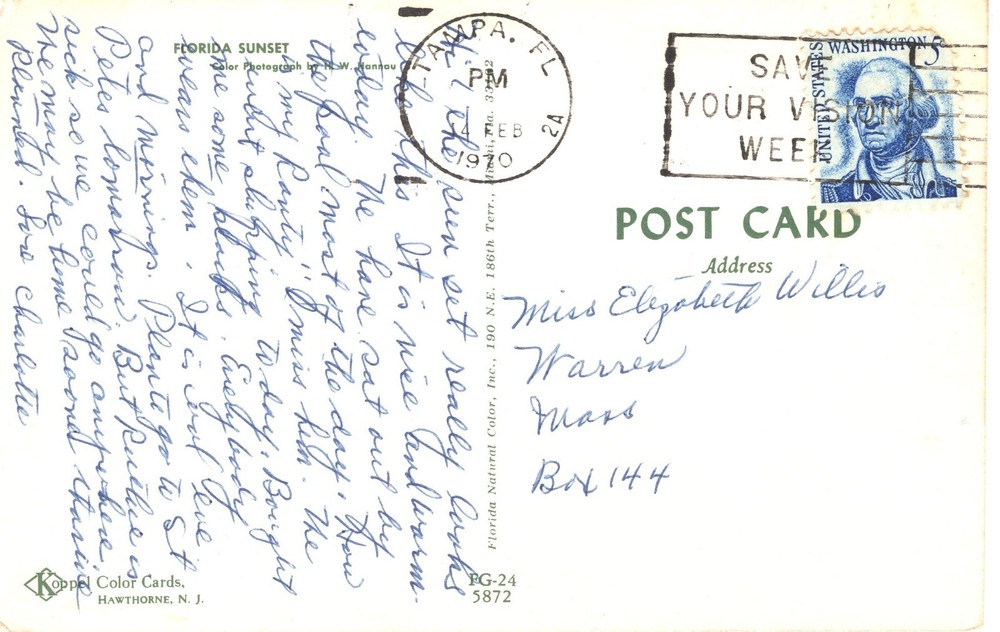 FLORIDA SUNSET
Color Photograph by H. W. Hannau
Hi! The sun set really looks
like this. It is nice and warm
today. We have sat out by
the pool most of the day. How
is my Ranty! I miss him. We
went shopping today. Bought
me some slacks. Everybody
wears them. It is cool eve
and mornings. Plan to go to St
Petes tomorrow. But Ruthie is
sick so we could go anywhere.
We may be home sooner than we
planned. Love Charlotte
Koppel Color Cards,
HAWTHORNE, N. J.
Florida Natural Color, Inc., 190 N.E. 186th Terr., Miami, Fla.
FG-24
5872
TAMPA, FL
PM
4 FEB
1970
2A
SAVE
YOUR VISION
WEEK
UNITED STATES
WASHINGTON 5c
POST CARD
Address
Miss Elizabeth Willis
Warren
Mass
Box 144